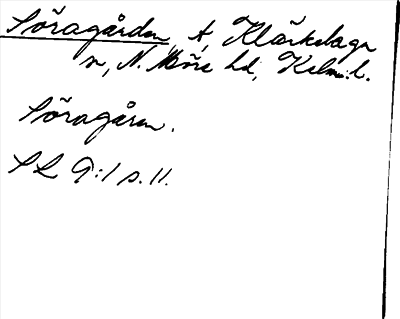 Söragården, t, Kläckeberga
sn, N. Möre hd, Kalm. l.
Söragåren.
SL 9:1 s. 11.